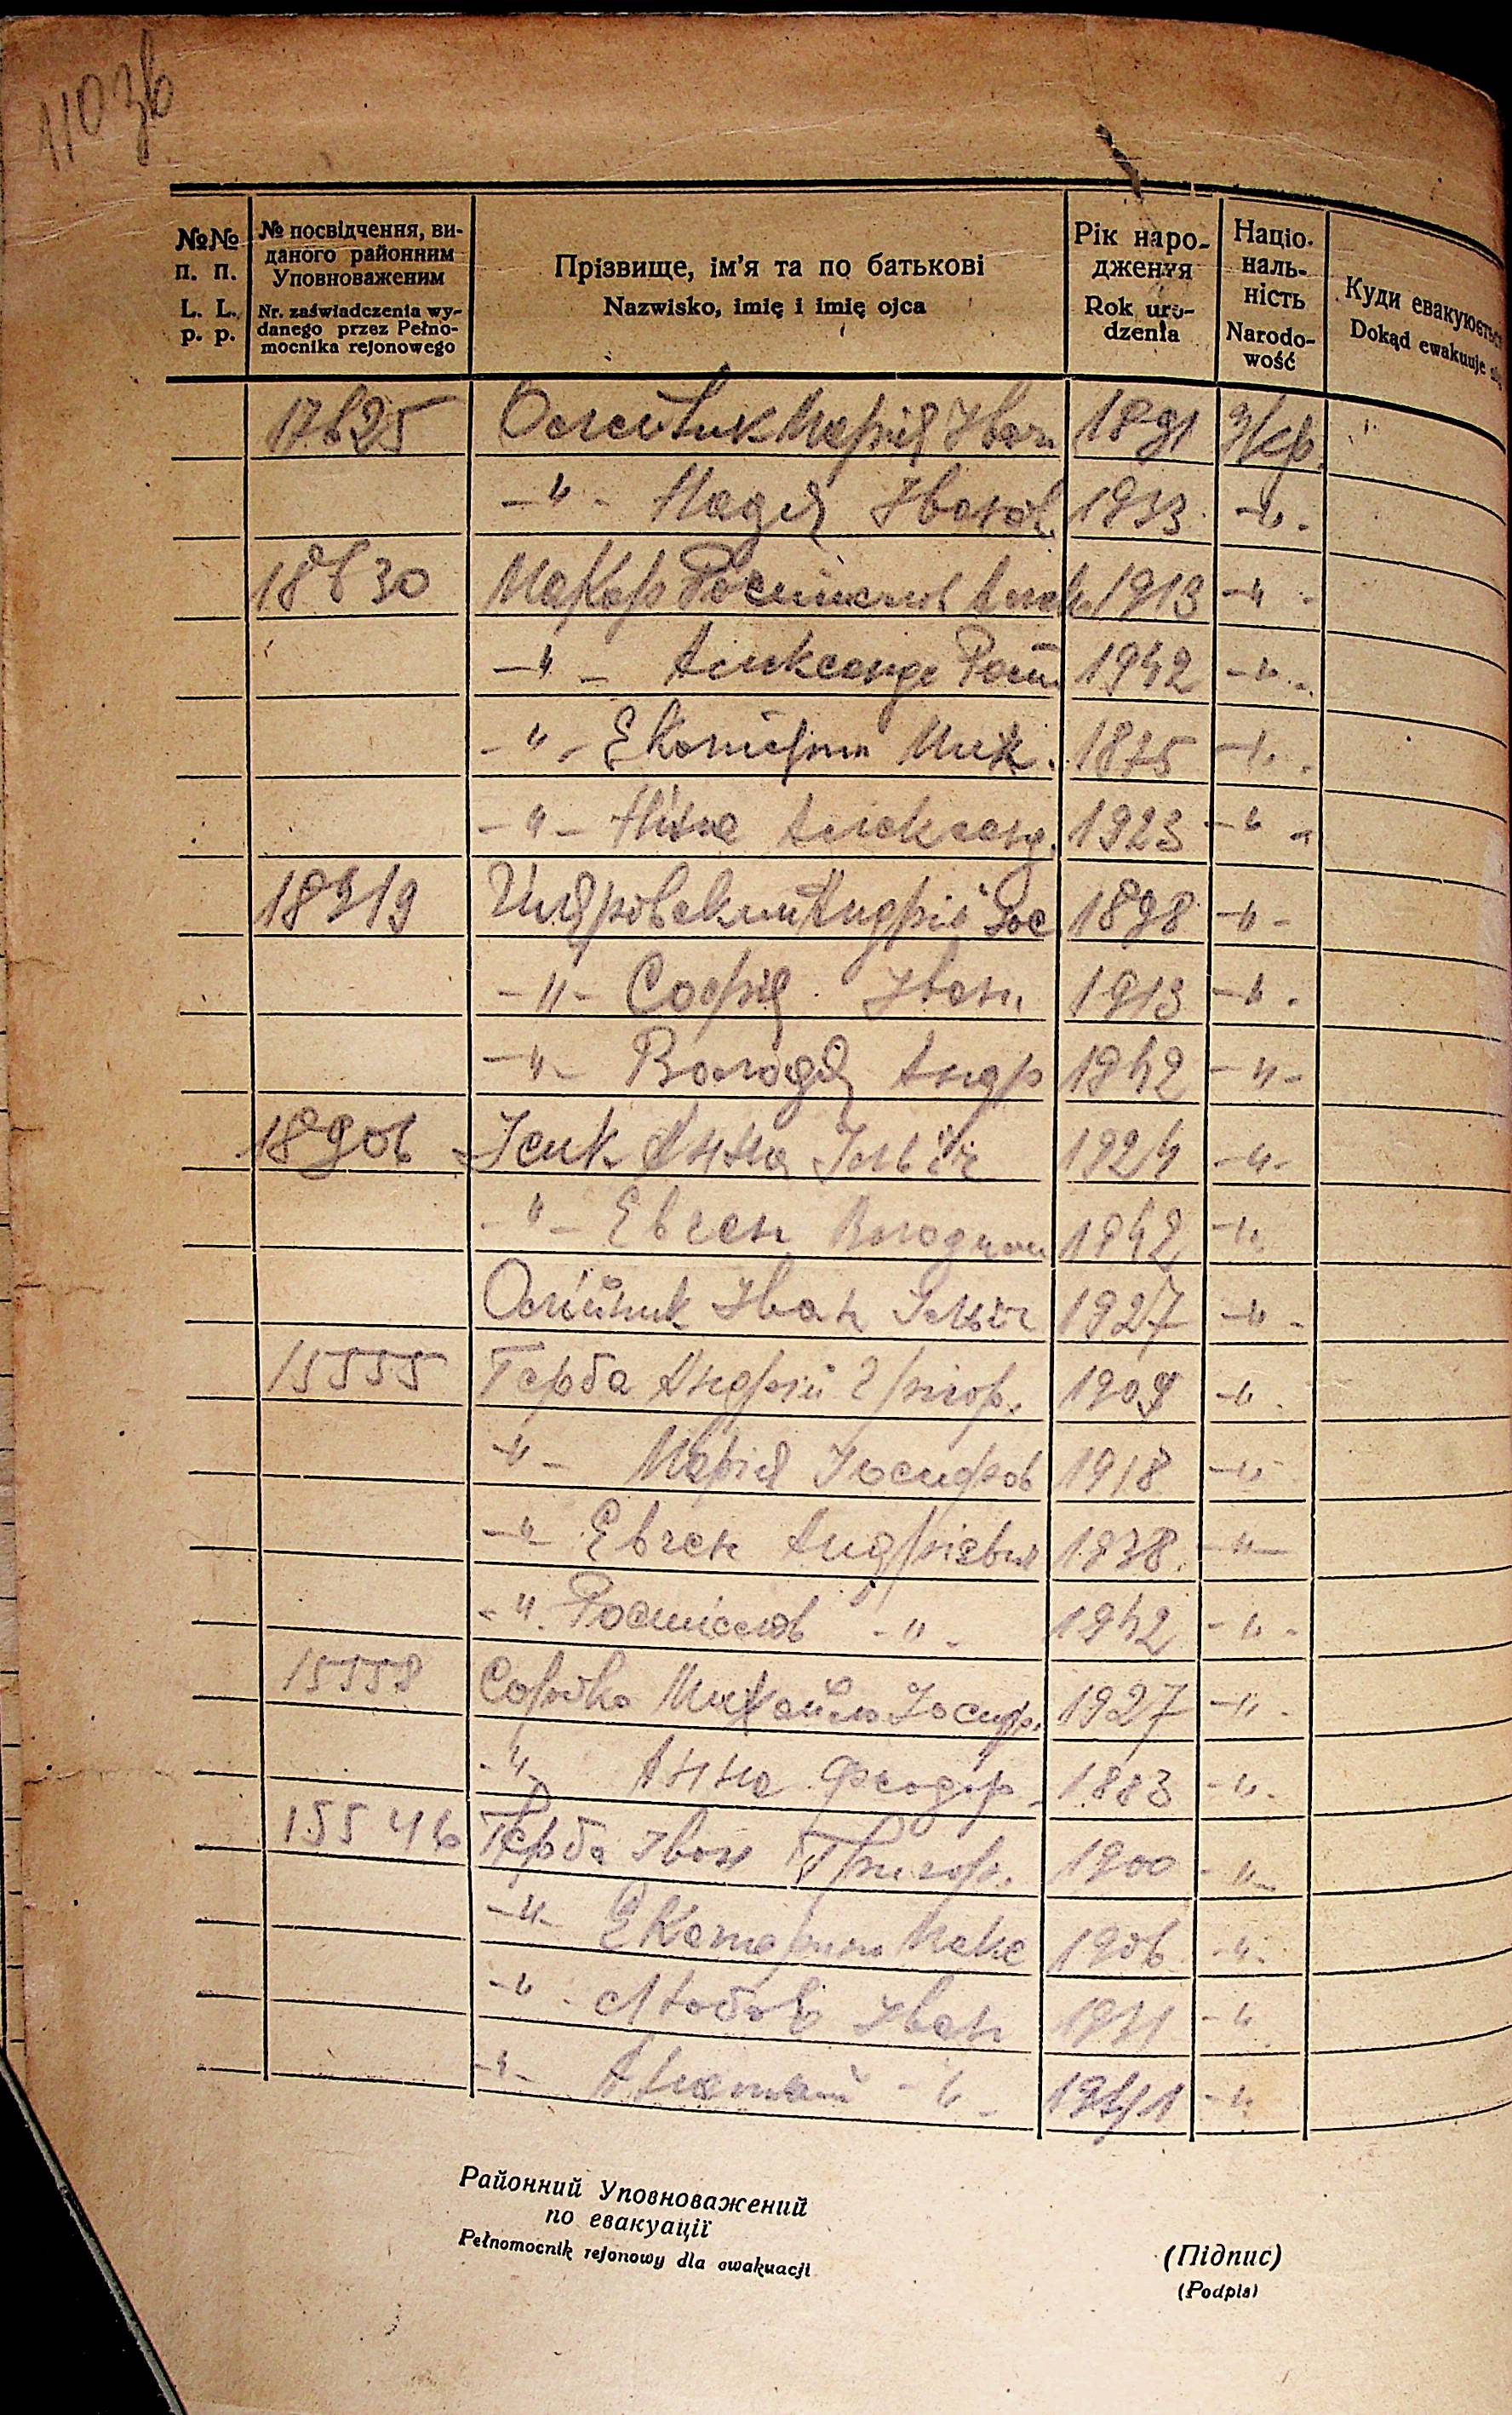 110 зв
№№ п. п. L. L. p. p.
№ посвідчення, виданого районним Уповноваженим
Nr. zaświadczenia wydanego przez Pełnomocnika rejonowego
Прізвище, ім'я та по батькові
Nazwisko, imię i imię ojca
Рік народження
Rok urodzenia
Націо-нальність
Narodowość
Куди евакуюється
Dokąd ewakuuje się
17625 Олейник Марія Іван 1891 Укр.
-"- Надія Іванов. 1933 -"-
18630 Макар Ростислав Алек. 1913 -"-
-"- Александр Рост 1942 -"-
-"- Екатерина Мик. 1875 -"-
-"- Ніна Александ. 1923 -"-
18919 Андрій Йос 1898 -"-
-"- Софія Іван. 1913 -"-
-"- Володя Андр 1942 -"-
18906 Анна 1924 -"-
-"- Евген Володим 1942 -"-
Олійник Іван 1927 -"-
15555 Герба Андрій Григор. 1909 -"-
-"- Марія Йосифов 1918 -"-
-"- Евген Андрієвич 1938 -"-
-"- Ростіслав -"- 1942 -"-
15558 Сорока Михайло Йосиф. 1927 -"-
-"- Анна Феодор. 1883 -"-
15546 Герба Іван Григор. 1900 -"-
-"- Екатерина Макс 1906 -"-
-"- Любов Іван 1931 -"-
-"- -"- 1941 -"-
Районний Уповноважений
по евакуації
Pełnomocnik rejonowy dla ewakuacji
(Підпис)
(Podpis)